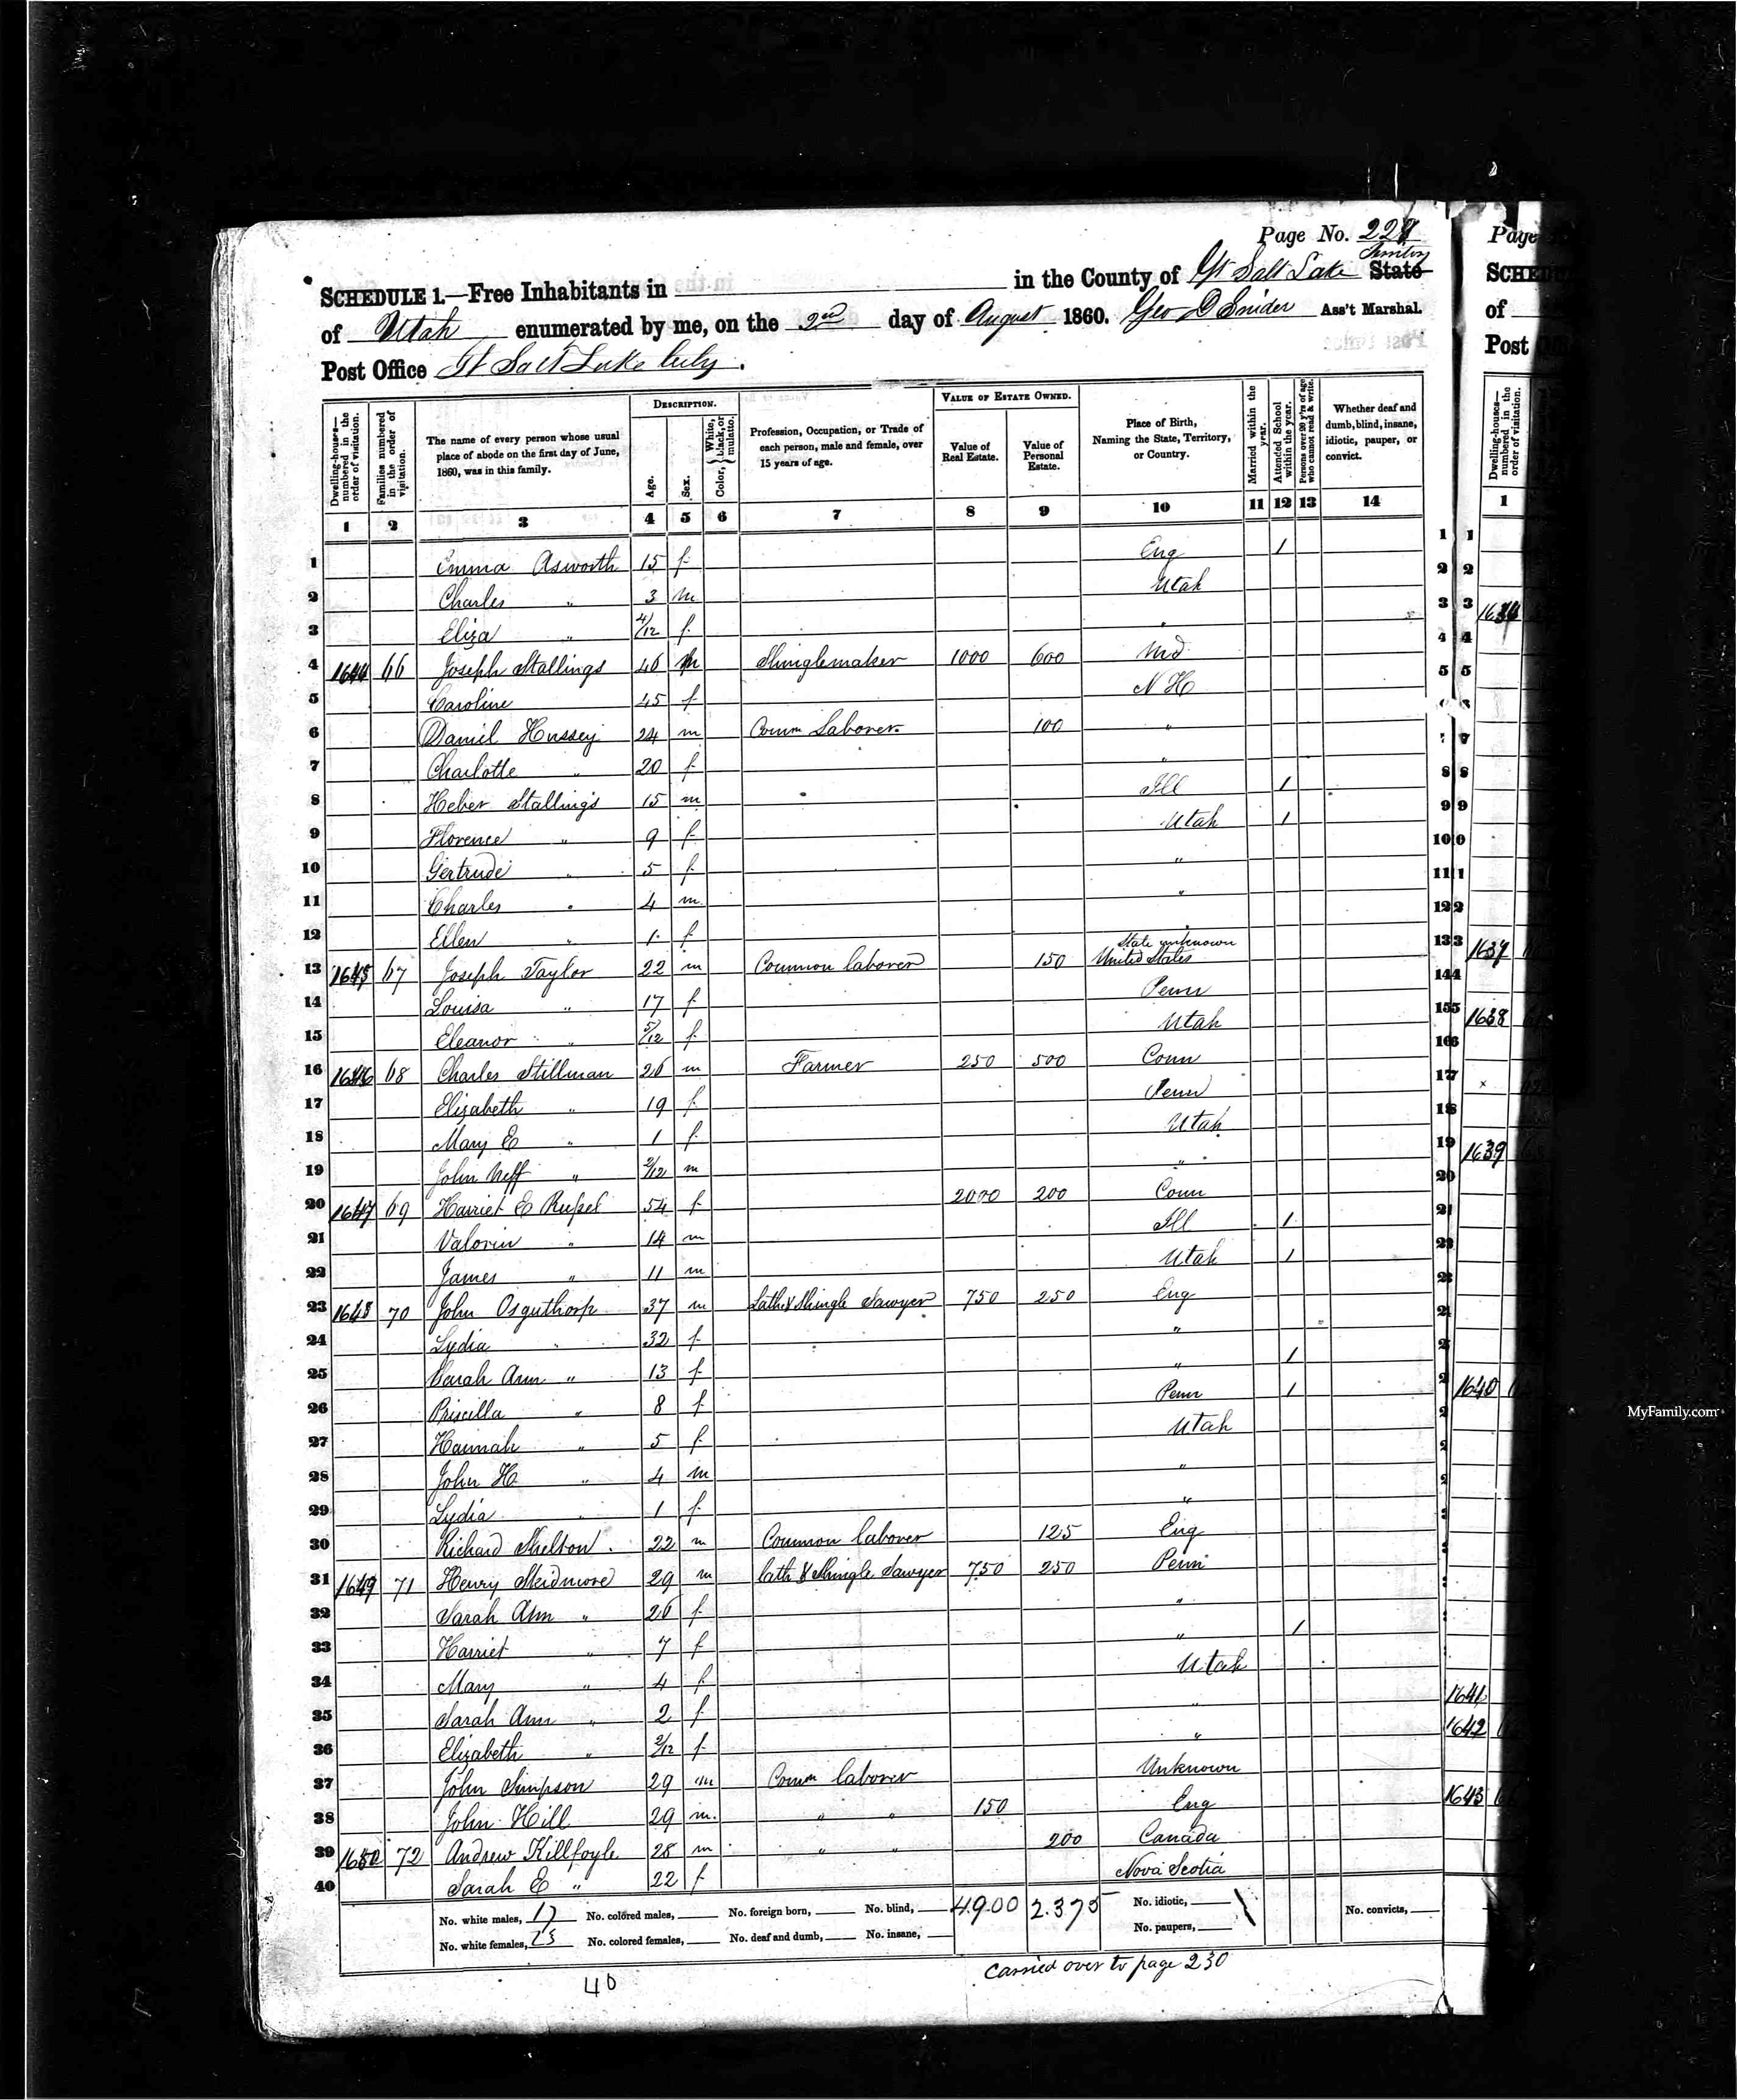 Page No. 229
SCHEDULE 1.—Free Inhabitants in in the County of Gt Salt Lake State
of Utah enumerated by me, on the 2nd day of August 1860. Geo D Snider Ass't Marshal.
Post Office Gt Salt Lake City.
DESCRIPTION. VALUE OF ESTATE OWNED.
Dwelling-houses—numbered in the order of visitation.
Families numbered in the order of visitation.
The name of every person whose usual place of abode on the first day of June, 1860, was in this family.
Age.
Sex.
Color, { White, black, or mulatto.
Profession, Occupation, or Trade of each person, male and female, over 15 years of age.
Value of Real Estate.
Value of Personal Estate.
Place of Birth, Naming the State, Territory, or Country.
Married within the year.
Attended School within the year.
Persons over 20 y'rs of age who cannot read & write.
Whether deaf and dumb, blind, insane, idiotic, pauper, or convict.
1 2 3 4 5 6 7 8 9 10 11 12 13 14
1 Emma Asworth 15 f Eng 1
2 Charles " 3 m Utah
3 Eliza " 4/12 f "
4 1644 66 Joseph Stallings 46 m Shinglemaker 1000 600 Md
5 Caroline 45 f N H
6 Daniel Hussey 24 m Comm Laborer 100 "
7 Charlotte " 20 f "
8 Heber Stallings 15 m Ill 1
9 Florence " 9 f Utah 1
10 Gertrude " 5 f "
11 Charles " 4 m "
12 Ellen " 1 f "
13 1645 67 Joseph Taylor 22 m Common laborer 150 State unknown United States
14 Louisa " 17 f Penn
15 Eleanor " 5/12 f Utah
16 1646 68 Charles Stillman 26 m Farmer 250 500 Conn
17 Elizabeth " 19 f Penn
18 Mary E " 1 f Utah
19 John Neff " 2/12 m "
20 1647 69 Harriet E Russel 54 f 2000 200 Conn
21 Valorin " 14 m Ill 1
22 James " 11 m Utah 1
23 1648 70 John Osguthorp 37 m Lath & Shingle Sawyer 750 250 Eng
24 Lydia " 32 f "
25 Sarah Ann " 13 f " 1
26 Priscilla " 8 f Penn 1
27 Hannah " 5 f Utah
28 John H " 4 m "
29 Lydia " 1 f "
30 Richard Shelton 22 m Common laborer 125 Eng
31 1649 71 Henry Skidmore 29 m lath & Shingle Sawyer 750 250 Penn
32 Sarah Ann " 26 f "
33 Harriet " 7 f " 1
34 Mary " 4 f Utah
35 Sarah Ann " 2 f "
36 Elizabeth " 2/12 f "
37 John Simpson 29 m Comm laborer Unknown
38 John Hill 29 m " " 150 Eng
39 1650 72 Andrew Killfoyle 28 m " " 200 Canada
40 Sarah E " 22 f Nova Scotia
No. white males, 17 No. colored males, No. foreign born, No. blind, 4900 2.375 No. idiotic, No. convicts,
No. white females, 23 No. colored females, No. deaf and dumb, No. insane, No. paupers,
40
Carried over to page 230
Page
SCHED
of
Post
Dwelling-houses—numbered in the order of visitation.
1
1637
1638
1639
1640
1641
1642
1643
MyFamily.com